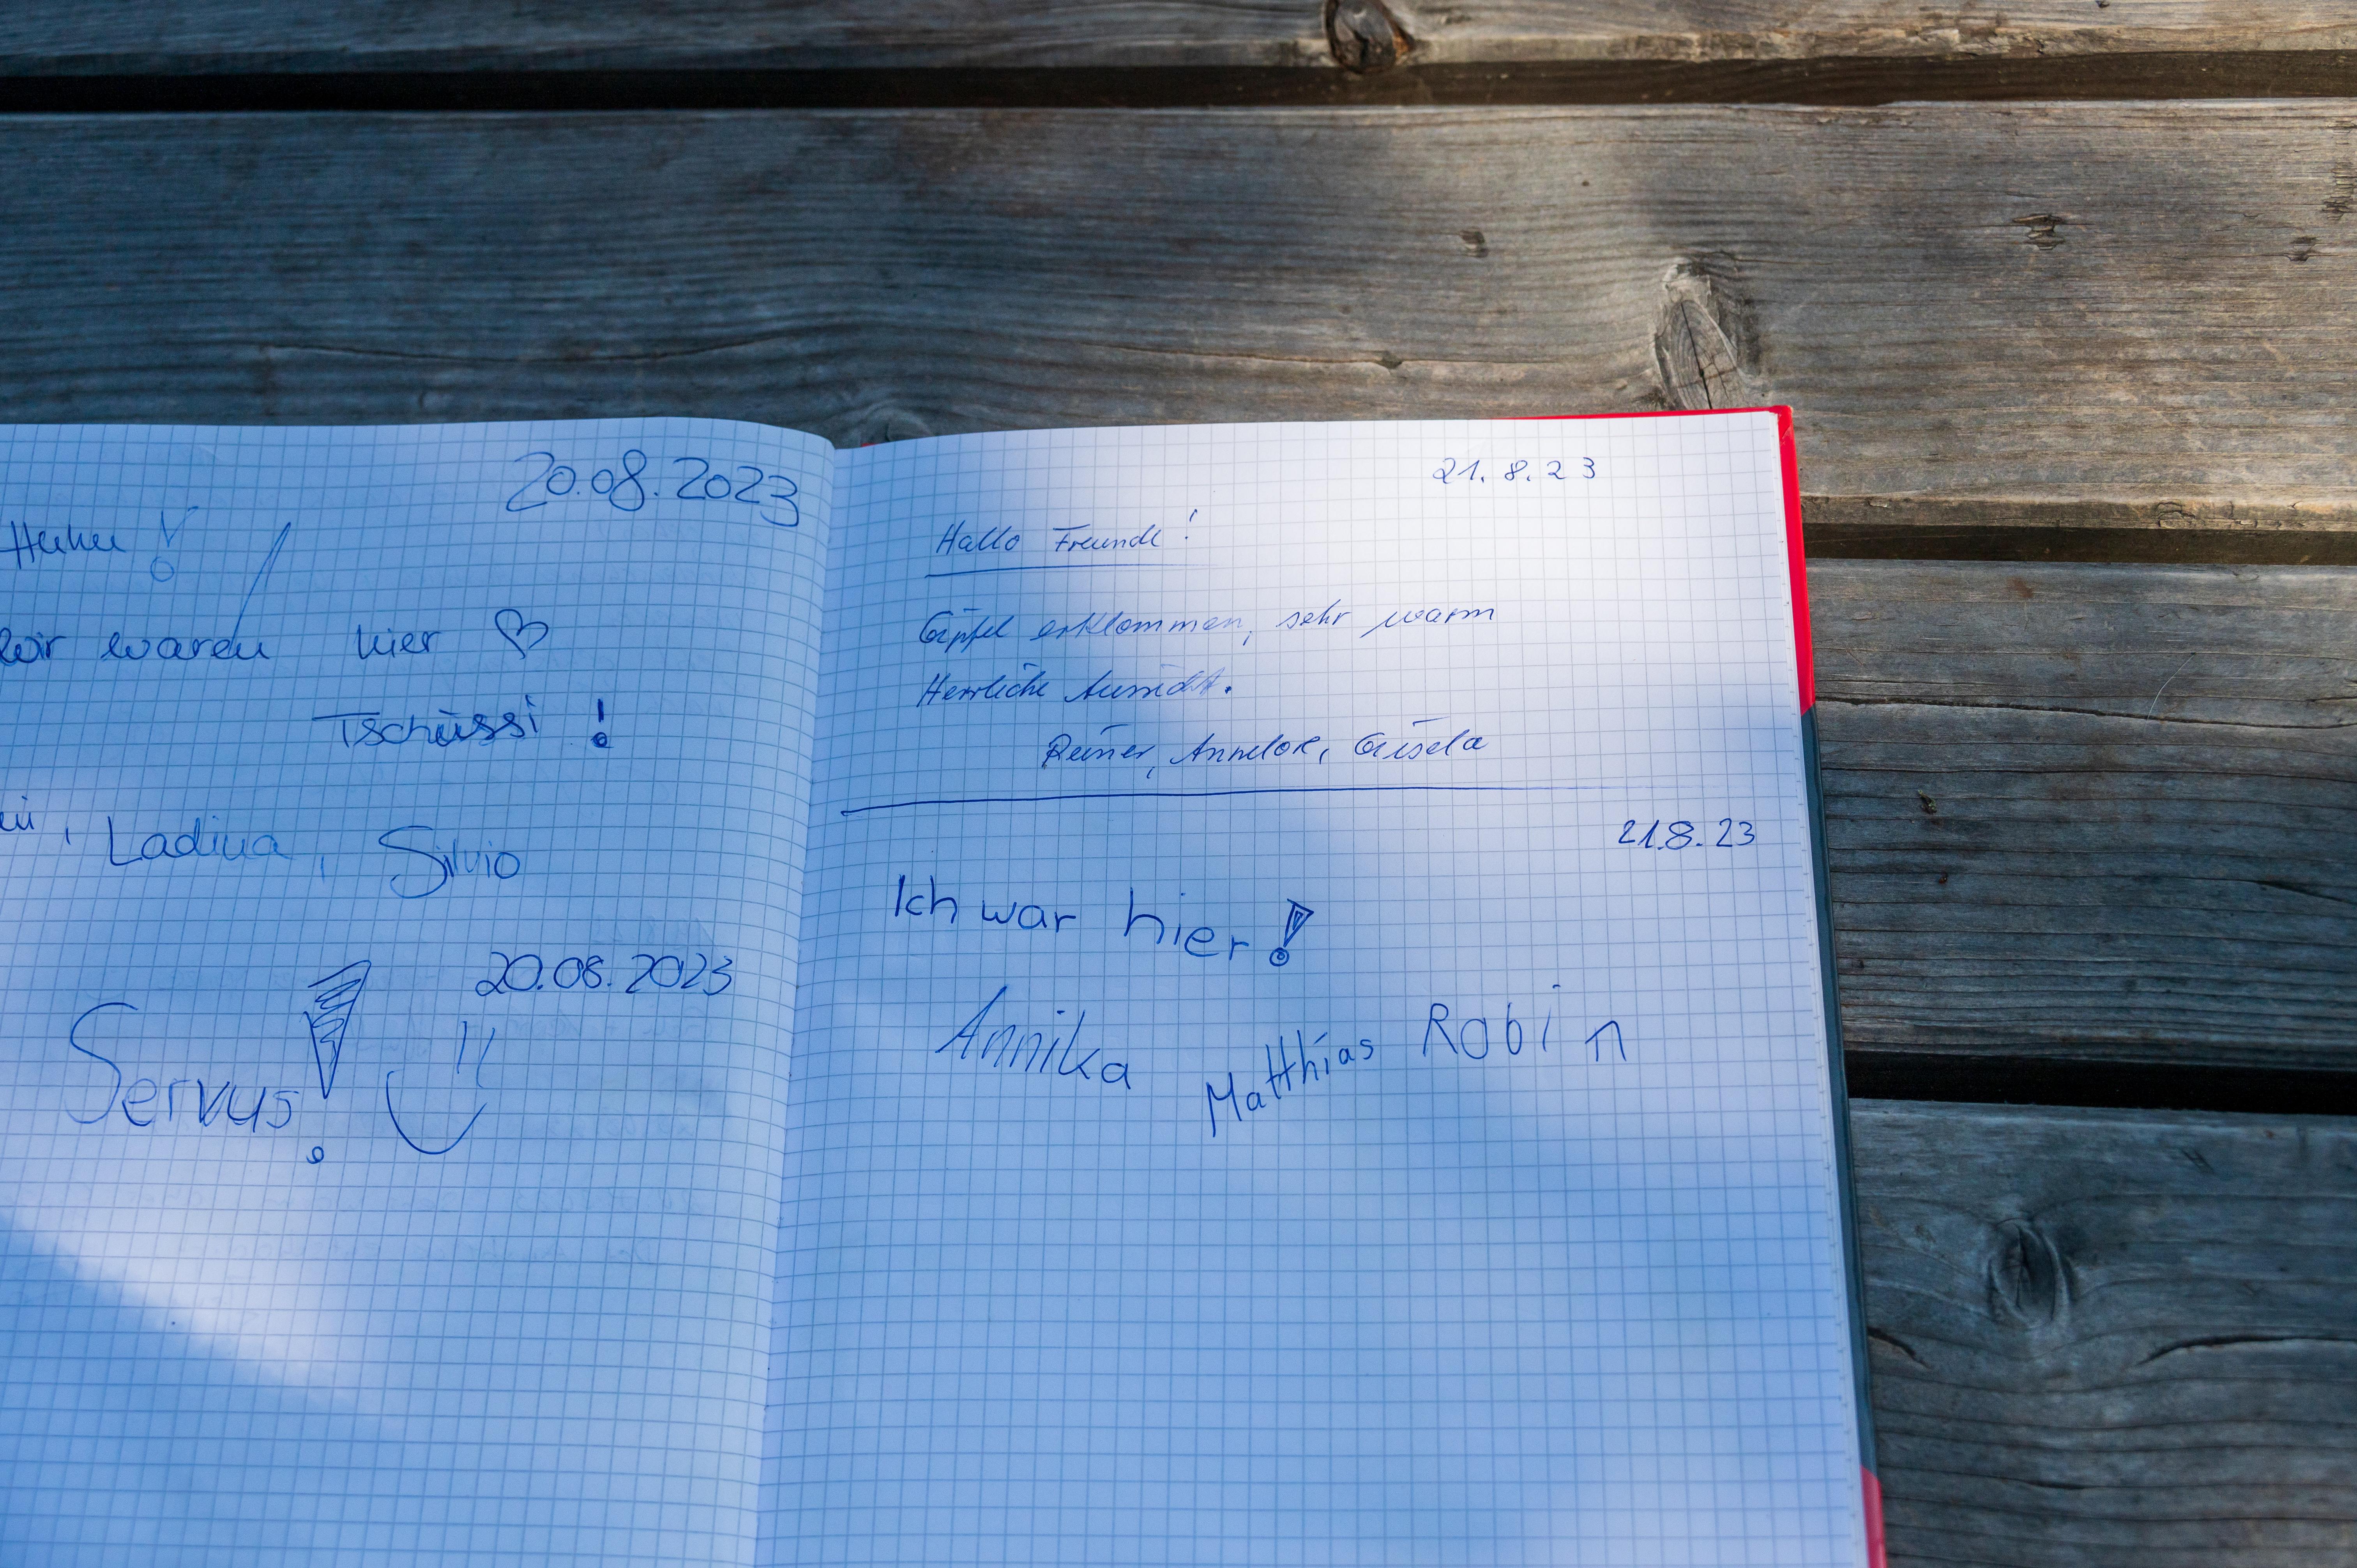 20.08.2023
Huhu!
Wir waren hier
Tschüssi!
, Ladina, Silvio
20.08.2023
Servus!
21.8.23
Hallo Freunde!
Gipfel erklommen, sehr warm
Herrliche Aussicht.
Reiner, Annelore, Gisela
21.8.23
Ich war hier!
Annika Matthias Robin